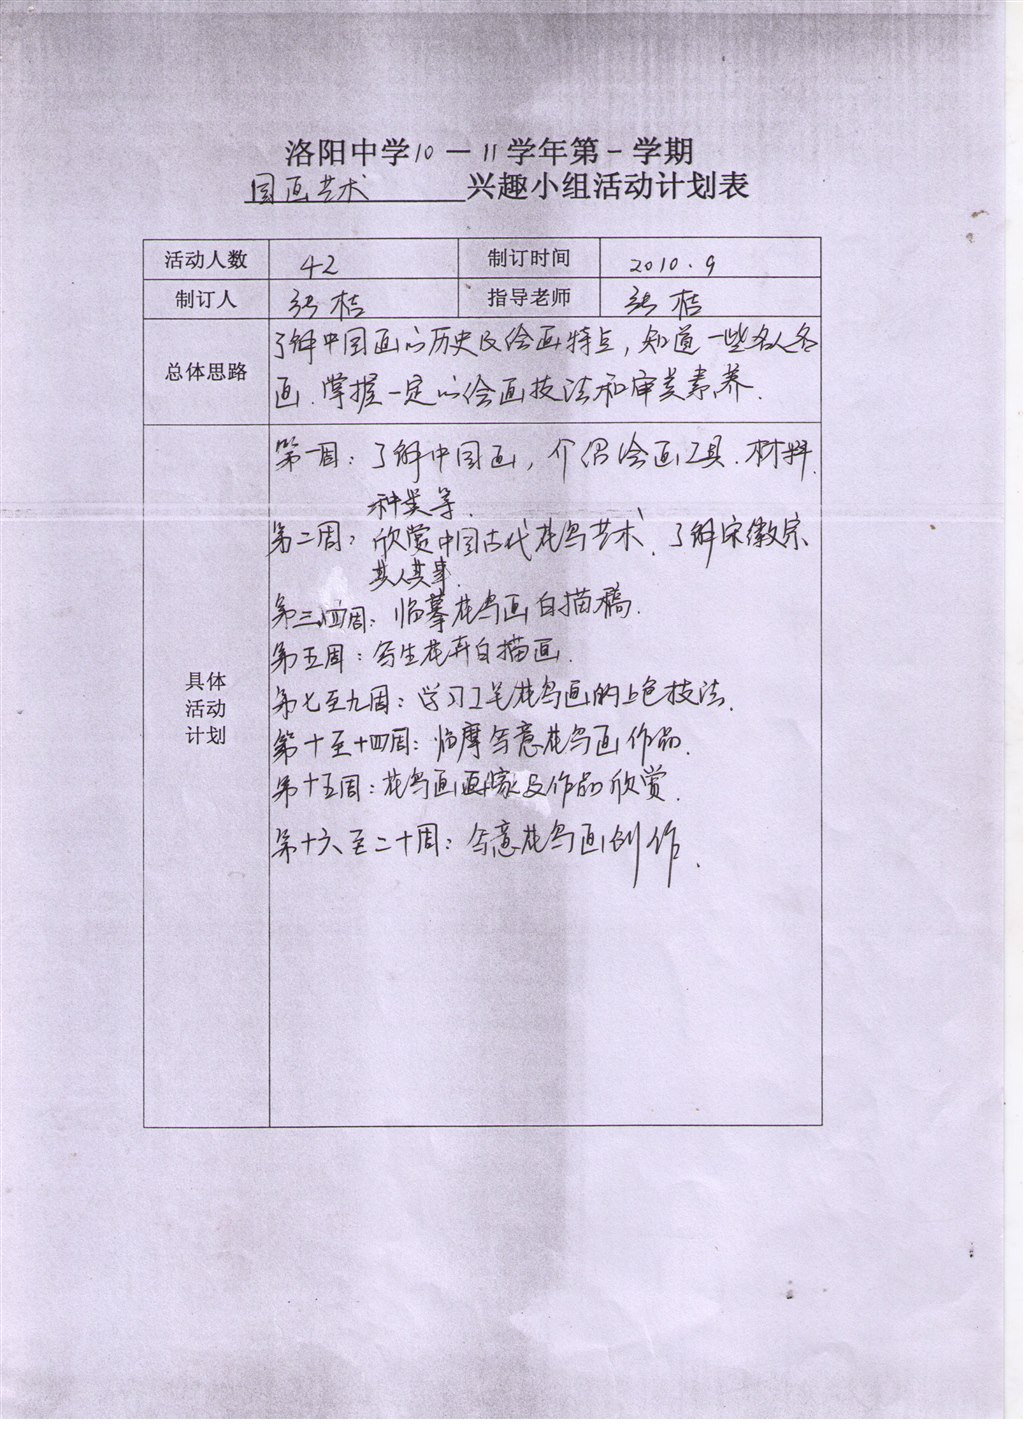 洛阳中学10－11学年第-学期
国画艺术 兴趣小组活动计划表
活动人数 42 制订时间 2010.9
制订人 张桔 指导老师 张桔
总体思路
了解中国画的历史及绘画特点，知道一些名人名
画.掌握一定的绘画技法和审美素养.
具体
活动
计划
第一周：了解中国画，介绍绘画工具.材料
种类等.
第二周：欣赏中国古代花鸟艺术、了解宋徽宗
其人其事.
第三、四周：临摹花鸟画白描稿.
第五周：写生花卉白描画.
第七至九周：学习工笔花鸟画的上色技法.
第十至十四周：临摩写意花鸟画作品.
第十五周：花鸟画画家及作品欣赏.
第十六至二十周：写意花鸟画创作.